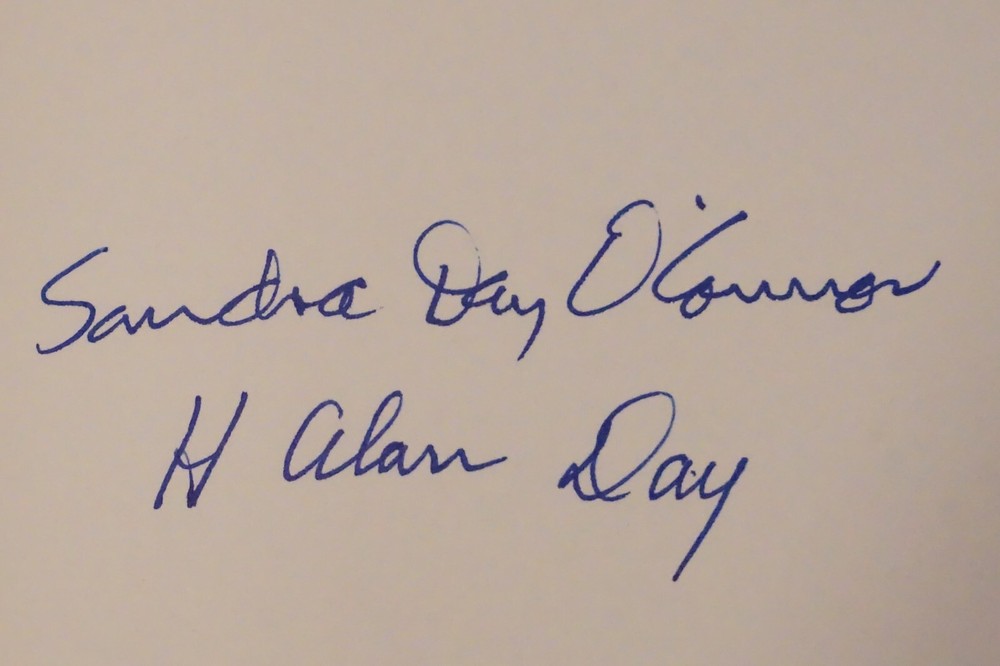 Sandra Day O'Connor
H Alan Day